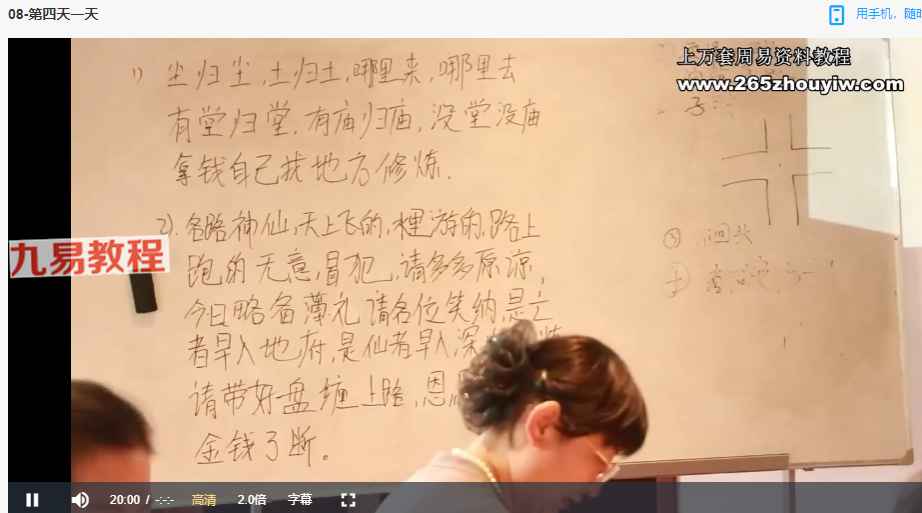 08-第四天一天
用手机，随时
上万套周易资料教程
www.265zhouyiw.com
九易教程
1) 尘归尘,土归土,哪里来,哪里去
有堂归堂,有庙归庙,没堂没庙
拿钱自己找地方修炼.
2).各路神仙,天上飞的,水里游的,路上
跑的无意冒犯,请多多原谅,
今日略备薄礼请各位笑纳,是亡
者早入地府,是仙者早入深
请带好盘缠上路,恩
金钱了断。
③ 回头
20:00 / -:-:-
高清
2.0倍
字幕